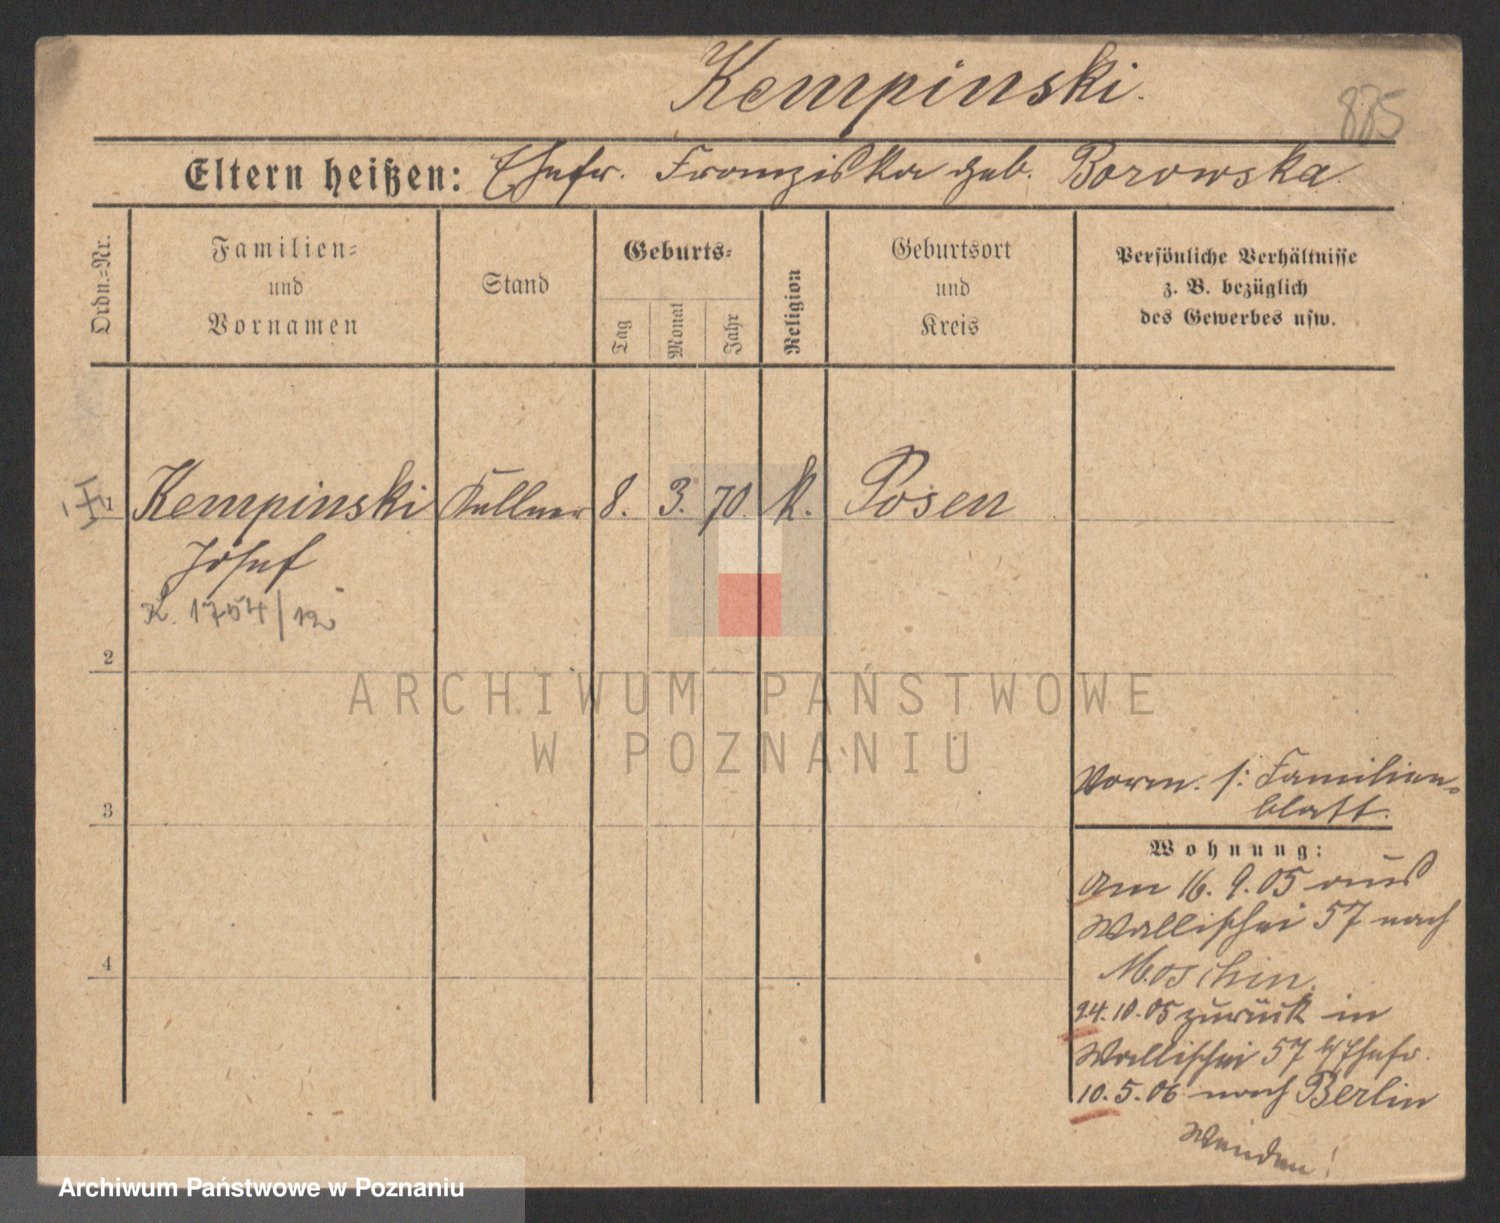 Kempinski.
Eltern heißen: Ehefr. Franziska geb. Borowska.
Ordn.-Nr.
Familien- und Vornamen
Stand
Geburts-
Tag
Monat
Jahr
Religion
Geburtsort und Kreis
Persönliche Verhältnisse
z. B. bezüglich
des Gewerbes usw.
1 Kempinski Kellner 8. 3. 70 k. Posen
Josef
K. 1754/12
2
3
4
Vorm. s: Familien-
blatt.
Wohnung:
Am 16. 9. 05 aus
Wallischei 57 nach
Moschin.
24. 10. 05 zurück in
Wallischei 57 b/Ehefr.
10. 5. 06 nach Berlin
Wenden!
ARCHIWUM PAŃSTWOWE
W POZNANIU
Archiwum Państwowe w Poznaniu